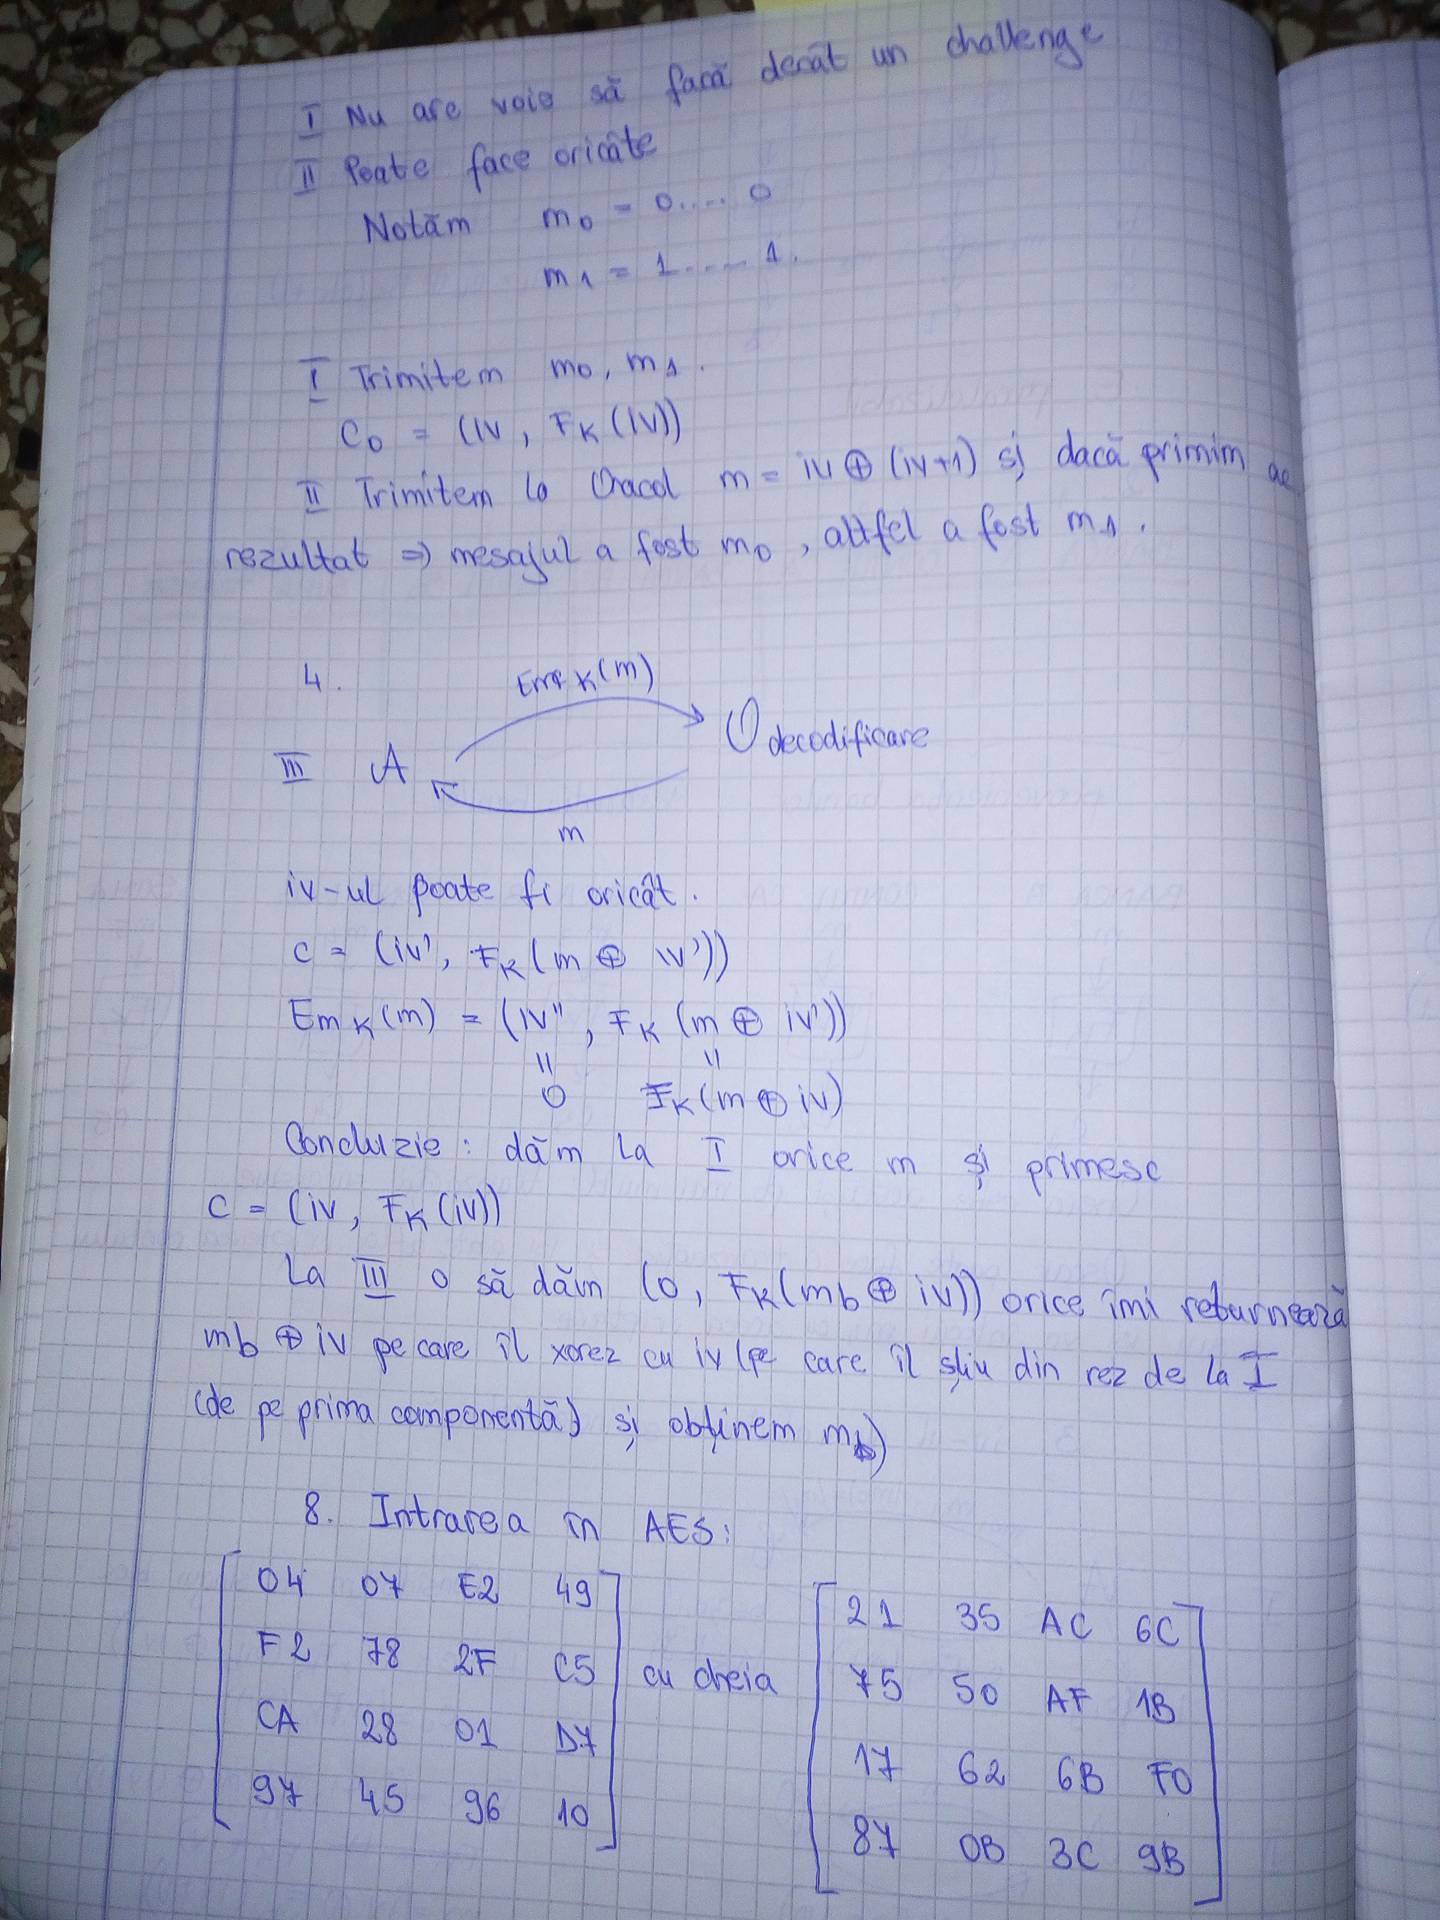 I Nu are voie să facă decât un challenge
II Poate face oricâte
Notăm m0 = 0....0
m1 = 1....1.
I Trimitem m0, m1.
C0 = (IV, FK(IV))
II Trimitem la Oracol m = iv ⊕ (iv+1) și dacă primim ac
rezultat => mesajul a fost m0, altfel a fost m1.
4.
EmcK(m)
III A O decodificare
m
iv-ul poate fi oricât.
C = (IV', FK(m ⊕ IV'))
EmK(m) = (IV'', FK(m ⊕ iv'))
= =
0 FK(m ⊕ iv)
Concluzie: dăm la I orice m și primesc
C = (IV, FK(IV))
La III o să dăm (0, FK(mb ⊕ iv)) orice îmi returnează
mb ⊕ iv pe care îl xorez cu iv (pe care îl știu din rez de la I
(de pe prima componentă) și obținem mb)
8. Intrarea în AES:
04 07 E2 49
F2 78 2F C5
CA 28 01 D7
97 45 96 10
cu cheia
21 35 AC 6C
75 50 AF 1B
17 62 6B F0
87 0B 3C 9B